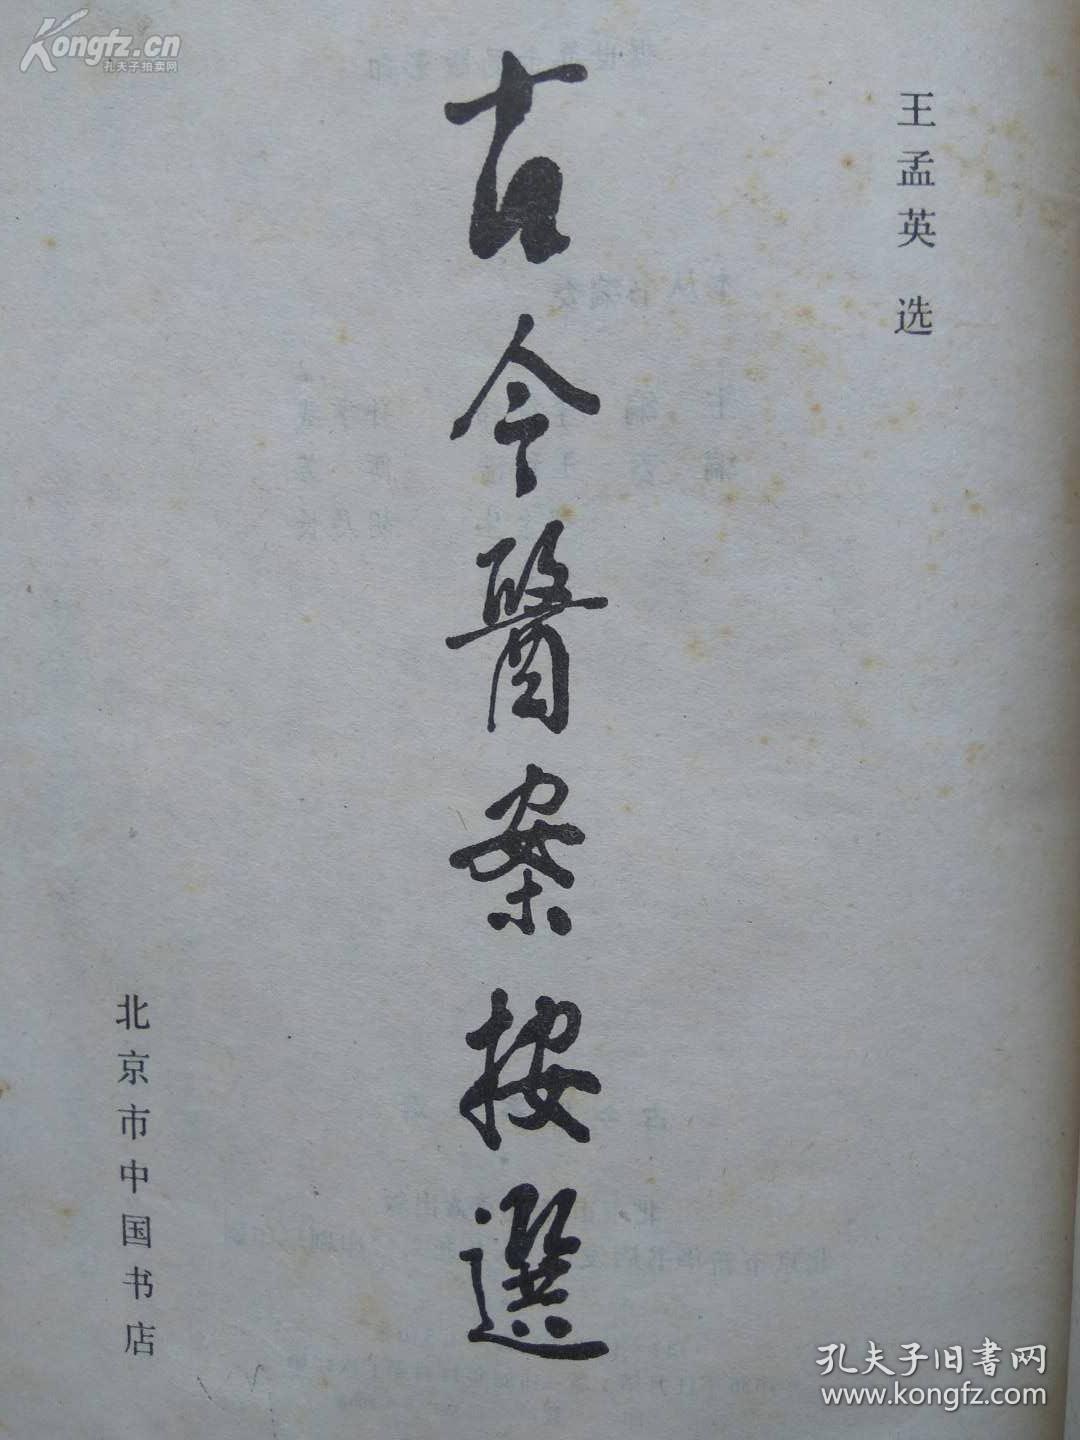 Kongfz.cn
孔夫子拍卖网
王孟英 选
古今醫案按選
北京市中国书店
孔夫子旧书网
www.kongfz.com